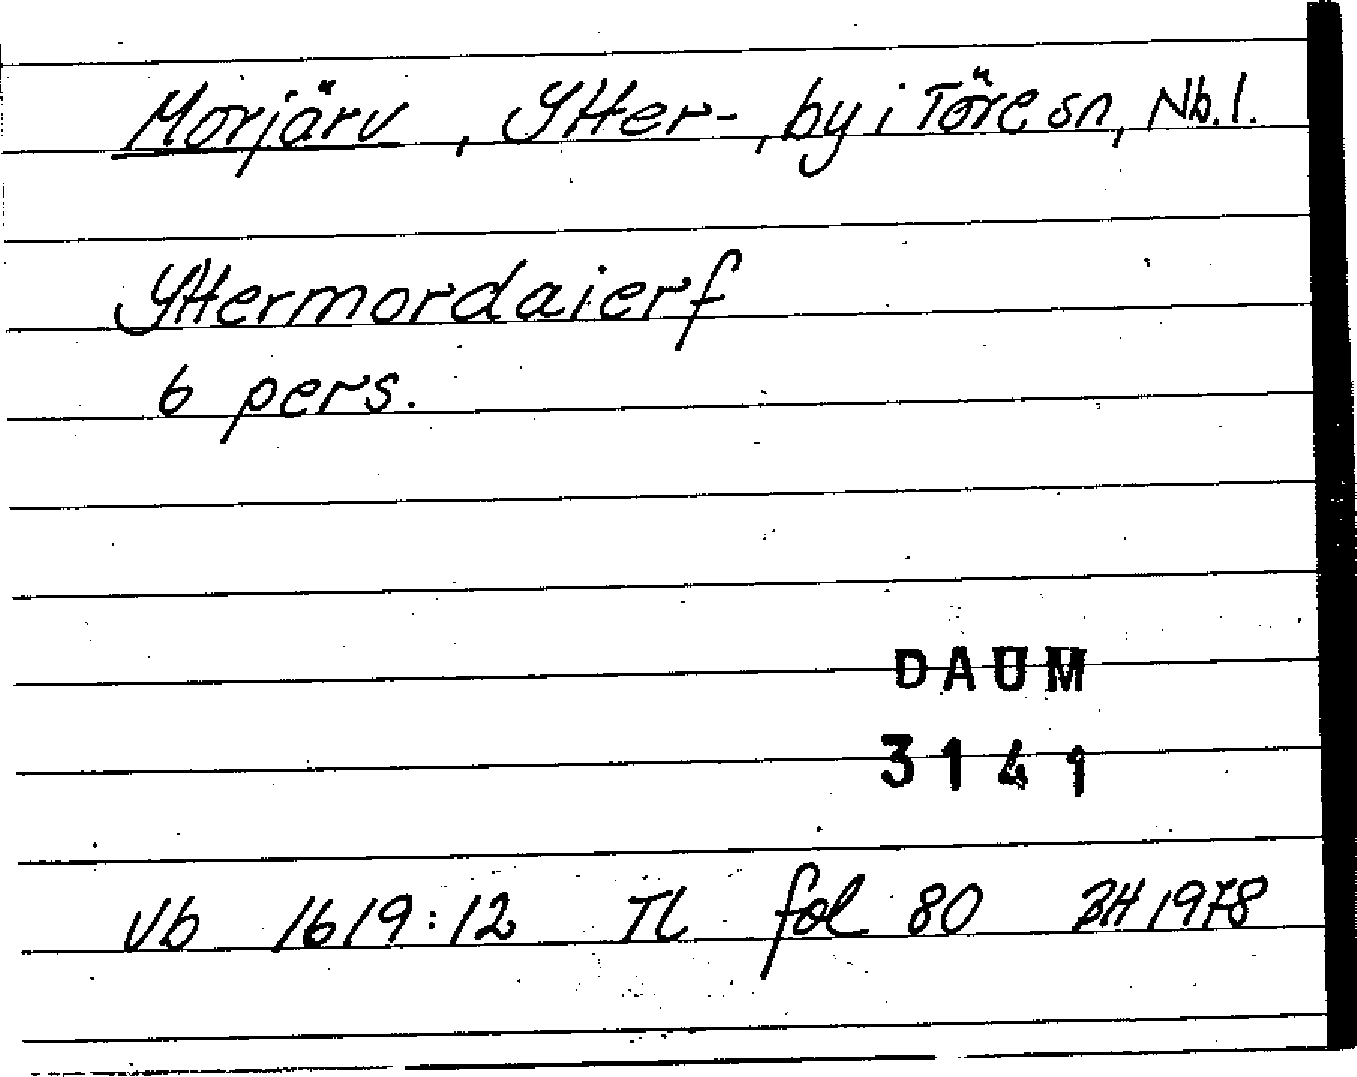 Morjärv, Ytter-, by i Töre sn, Nb. l.
Yttermordaierf
6 pers.
DAUM
3141
Vb 1619:12 TL fol 80 BH 1978